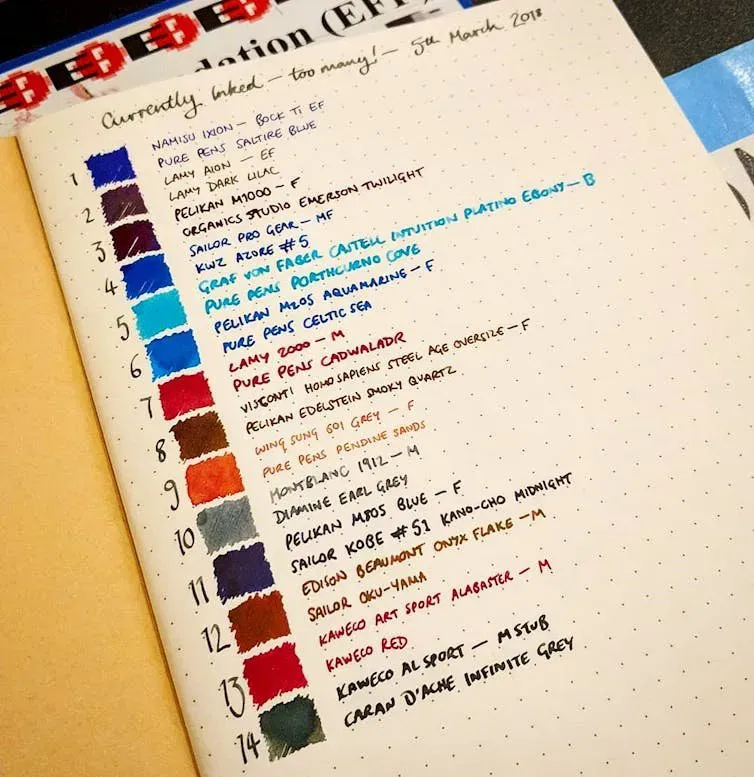 dation (EFF)
Currently Inked — too many! — 5th March 2018
1
NAMISU IXION — BOCK TI EF
PURE PENS SALTIRE BLUE
2
LAMY AION — EF
LAMY DARK LILAC
3
PELIKAN M1000 — F
ORGANICS STUDIO EMERSON TWILIGHT
4
SAILOR PRO GEAR — MF
KWZ AZURE #5
5
GRAF VON FABER CASTELL INTUITION PLATINO EBONY — B
PURE PENS PORTHCURNO COVE
6
PELIKAN M205 AQUAMARINE — F
PURE PENS CELTIC SEA
7
LAMY 2000 — M
PURE PENS CADWALADR
8
VISCONTI HOMO SAPIENS STEEL AGE OVERSIZE — F
PELIKAN EDELSTEIN SMOKY QUARTZ
9
WING SUNG 601 GREY — F
PURE PENS PENDINE SANDS
10
MONTBLANC 1912 — M
DIAMINE EARL GREY
11
PELIKAN M805 BLUE — F
SAILOR KOBE #51 KANO-CHO MIDNIGHT
12
EDISON BEAUMONT ONYX FLAKE — M
SAILOR OKU-YAMA
13
KAWECO ART SPORT ALABASTER — M
KAWECO RED
14
KAWECO AL SPORT — M STUB
CARAN D'ACHE INFINITE GREY